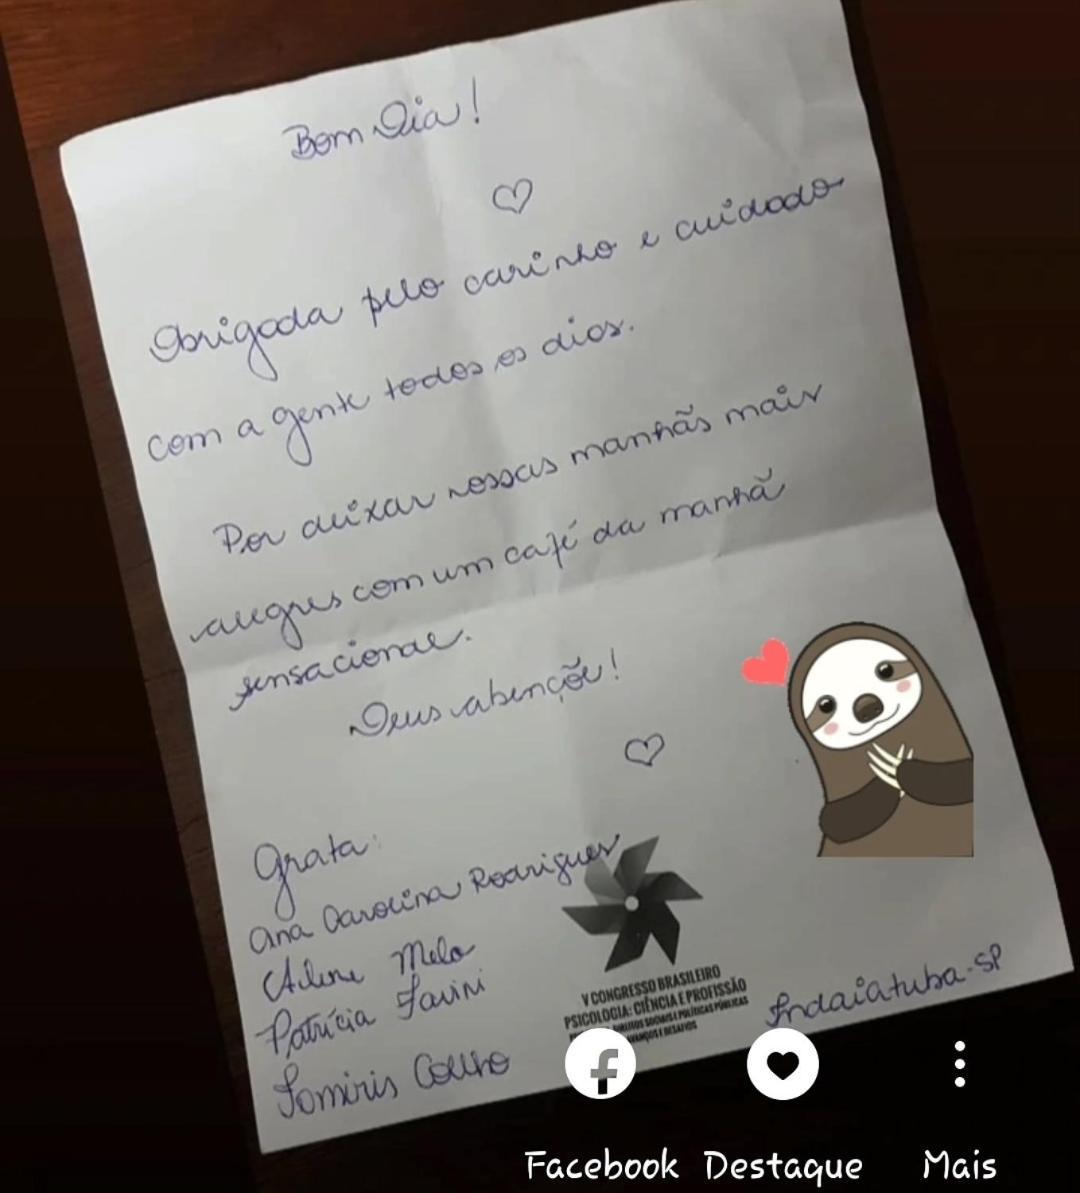 Bom Dia!
Obrigada pelo carinho e cuidado
com a gente todos os dias.
Por deixar nossas manhãs mais
alegres com um café da manhã
sensacional.
Deus abençõe!
Grata:
Ana Carolina Rodrigues
Aline Melo
Patrícia Favini
Tamiris Coelho
V CONGRESSO BRASILEIRO
PSICOLOGIA: CIÊNCIA E PROFISSÃO
DIREITOS SOCIAIS E POLÍTICAS PÚBLICAS
AVANÇOS E DESAFIOS
Indaiatuba-SP
Facebook Destaque Mais